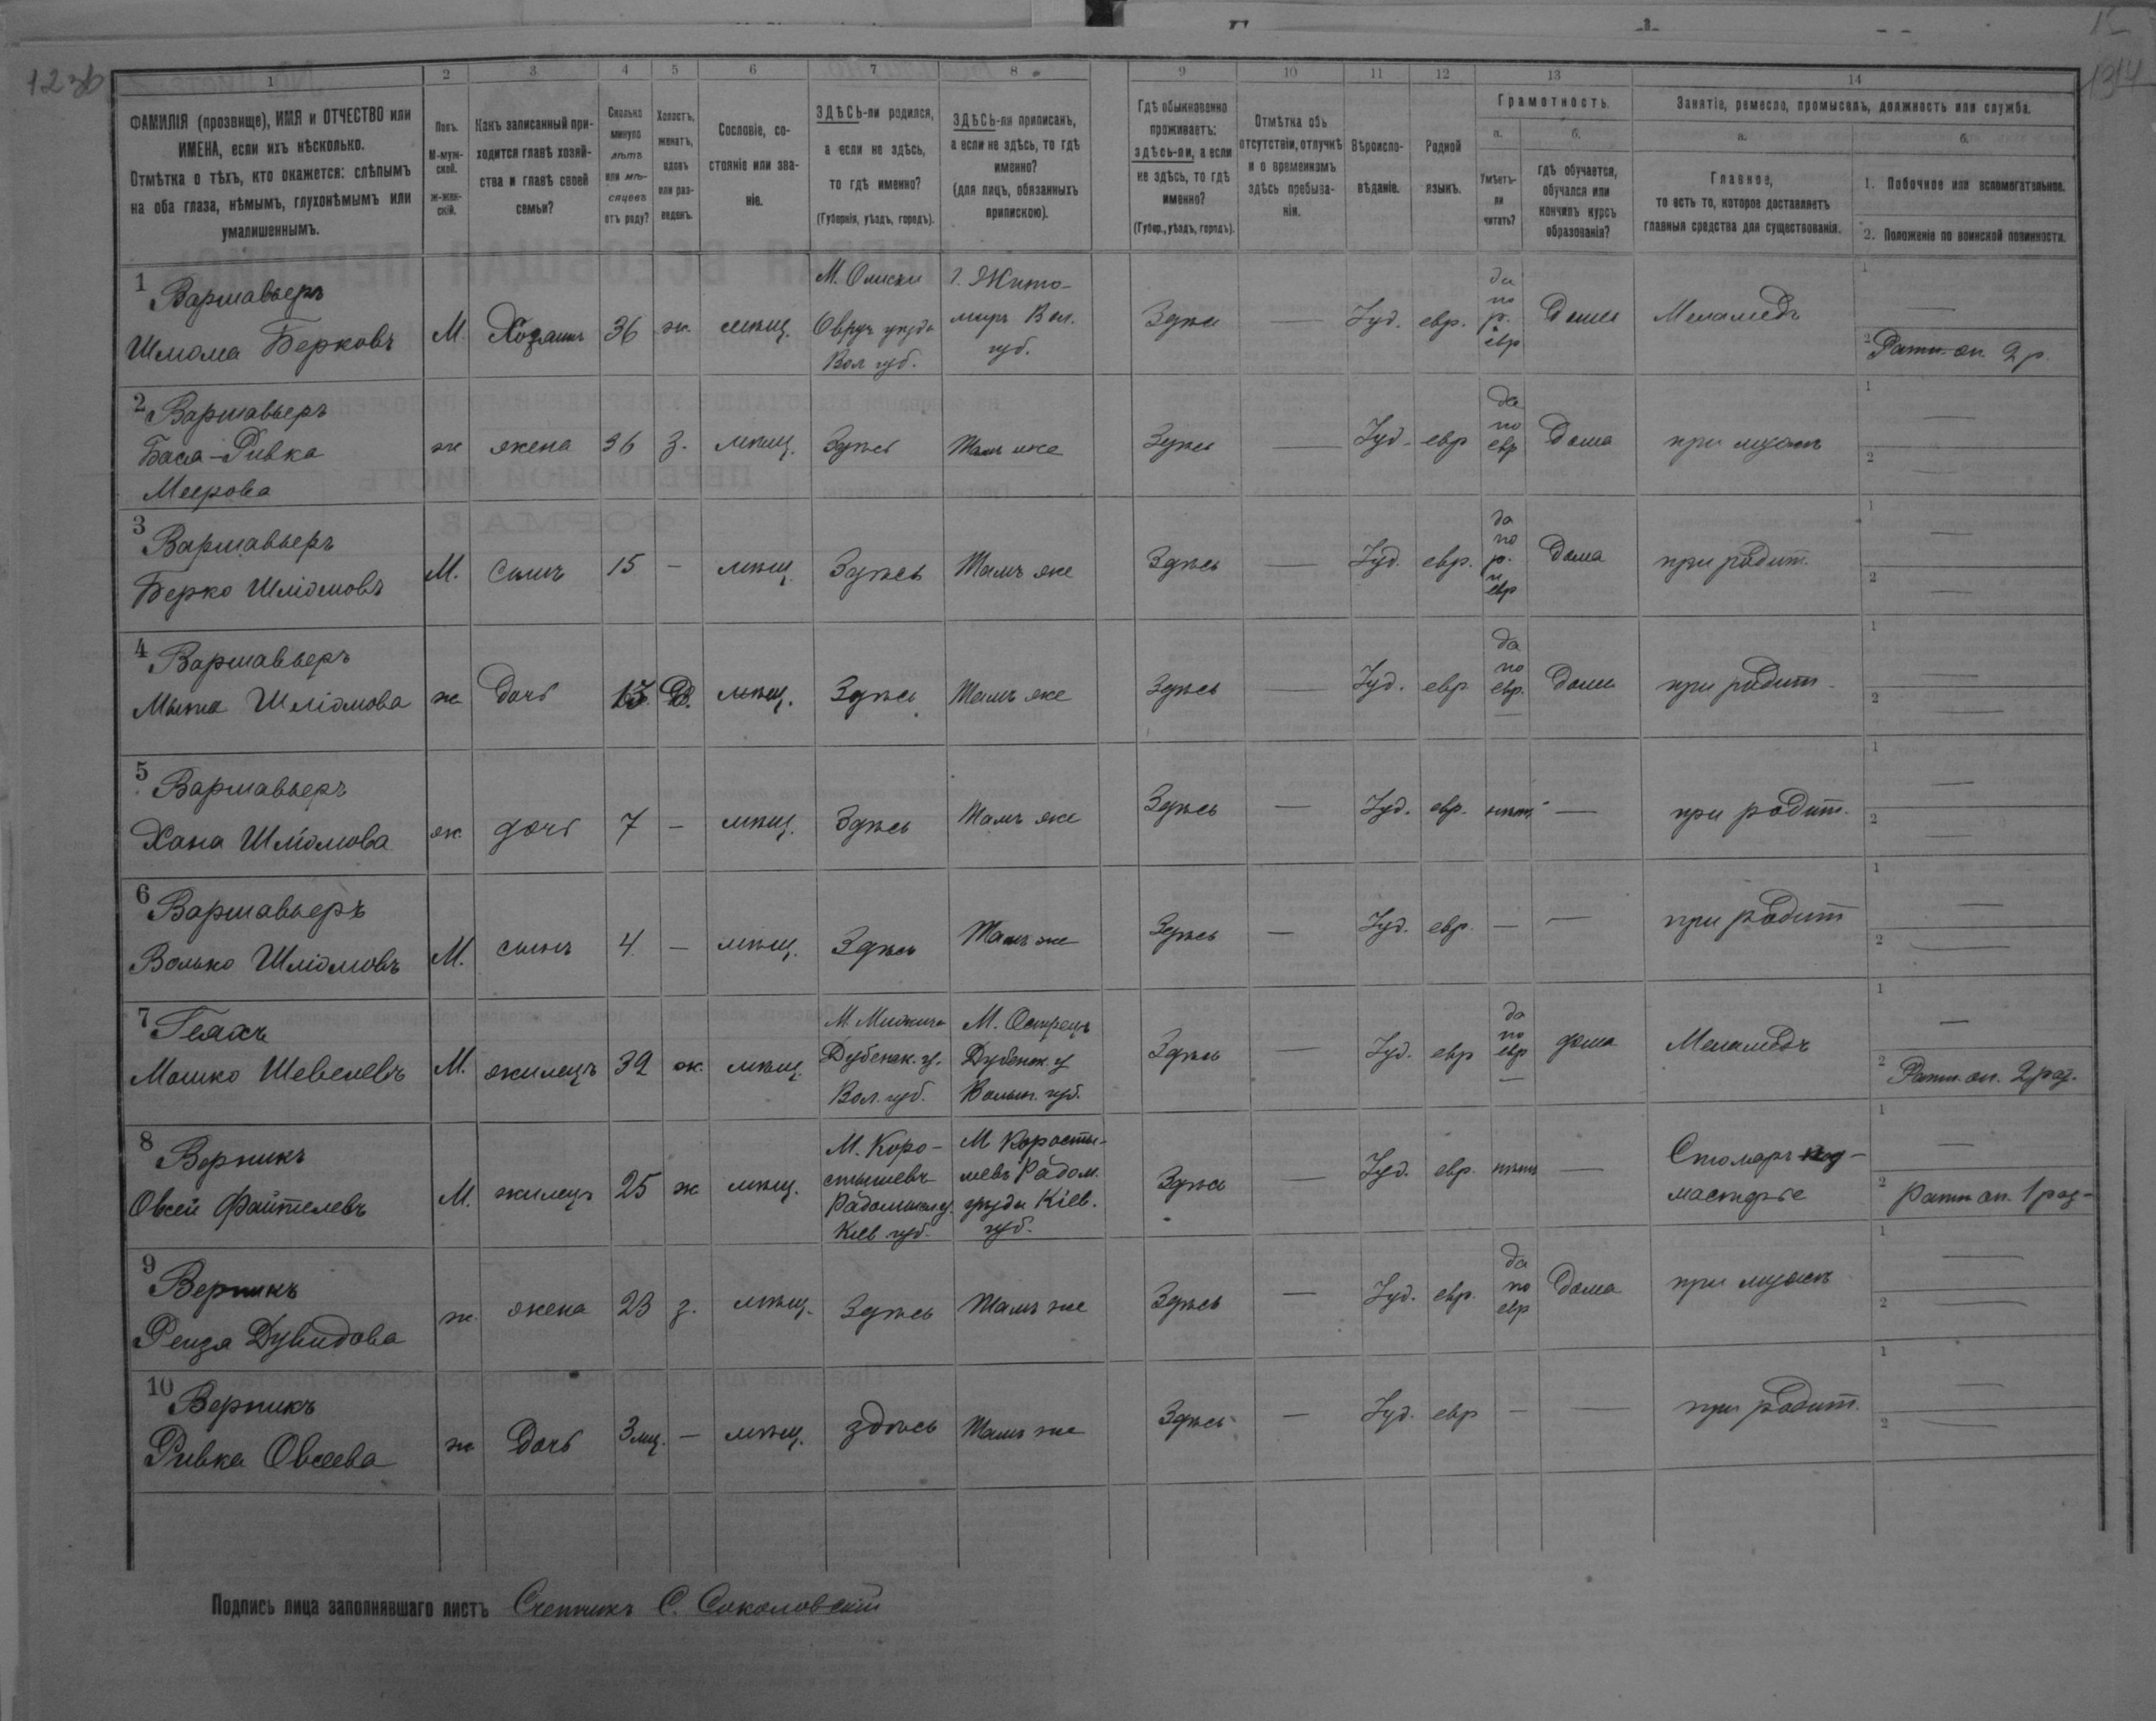 123б
15
1314
1
2
3
4
5
6
7
8
9
10
11
12
13
14
ФАМИЛІЯ (прозвище), ИМЯ и ОТЧЕСТВО или
ИМЕНА, если ихъ нѣсколько.
Отмѣтка о тѣхъ, кто окажется: слѣпымъ
на оба глаза, нѣмымъ, глухонѣмымъ или
умалишеннымъ.
Полъ.
М-муж-
ской.
ж-жен-
скій.
Какъ записанный при-
ходится главѣ хозяй-
ства и главѣ своей
семьи?
Сколько
минуло
лѣтъ
или мѣ-
сяцевъ
отъ роду?
Холостъ,
женатъ,
вдовъ
или раз-
веденъ.
Сословіе, со-
стояніе или зва-
ніе.
ЗДѢСЬ-ли родился,
а если не здѣсь,
то гдѣ именно?
(Губернія, уѣздъ, городъ).
ЗДѢСЬ-ли приписанъ,
а если не здѣсь, то гдѣ
именно?
(для лицъ, обязанныхъ
припискою).
Гдѣ обыкновенно
проживаетъ:
здѣсь-ли, а если
не здѣсь, то гдѣ
именно?
(Губер., уѣздъ, городъ).
Отмѣтка объ
отсутствіи, отлучкѣ
и о временномъ
здѣсь пребыва-
ніи.
Вѣроиспо-
вѣданіе.
Родной
языкъ.
Грамотность.
а.
Умѣетъ-
ли
читать?
б.
гдѣ обучается,
обучался или
кончилъ курсъ
образованія?
Занятіе, ремесло, промыселъ, должность или служба.
а.
Главное,
то есть то, которое доставляетъ
главныя средства для существованія.
б.
1. Побочное или вспомогательное.
2. Положеніе по воинской повинности.
1 Варшавьеръ
Шлома Берковъ
М. Хозяинъ 36 ж. мѣщ.
М. Олиски
Овруч уѣзда
Вол губ.
г. Жито-
миръ Вол.
губ.
Здѣсь — Іуд. евр.
да
по
р.
евр
Дома Меламедъ
1 —
2 Ратн. оп. 2 р.
2 Варшавьеръ
Бася-Ривка
Меерова
ж жена 36 з. мѣщ. Здѣсь Тамъ же Здѣсь — Іуд. евр
да
по
евр
Дома при мужѣ
1 —
2 —
3 Варшавьеръ
Берко Шліомовъ
М. Сынъ 15 — мѣщ. Здѣсь Тамъ же Здѣсь — Іуд. евр.
да
по
р.
и
евр
Дома при родит.
1 —
2 —
4 Варшавьеръ
Шліомова
ж Дочь 13 Д. мѣщ. Здѣсь Тамъ же Здѣсь — Іуд. евр
да
по
евр.
—
Дома при родит.
1 —
2 —
5 Варшавьеръ
Хана Шліомова
ж дочь 7 — мѣщ. Здѣсь Тамъ же Здѣсь — Іуд. евр. нѣтъ — при родит.
1 —
2 —
6 Варшавьеръ
Волько Шліомовъ
М. сынъ 4 — мѣщ. Здѣсь Тамъ же Здѣсь — Іуд. евр. — — при родит
1 —
2 —
7
Мошко Шевелевъ
М. жилецъ 39 ж. мѣщ.
М.
Дубенск. у.
Вол. губ.
М.
Дубенск. у
Волын. губ.
Здѣсь — Іуд. евр
да
по
евр
—
дома Меламедъ
1 —
2 Ратн. оп. 2 раз.
8 Верникъ
Овсей Файтелевъ
М. жилецъ 25 ж мѣщ.
М. Коро-
стышевъ
Радомысл у.
Кіев губ.
М Коросты-
шевъ Радом.
уѣзда Кіев.
губ.
Здѣсь — Іуд. евр. нѣтъ —
Столяръ под-
мастерье
1 —
2 Ратн оп. 1 раз-
9 Верникъ
Рейзя Дувидова
ж. жена 23 з. мѣщ. Здѣсь Тамъ же Здѣсь — Іуд. евр.
да
по
евр
Дома при мужѣ
1 —
2 —
10 Верникъ
Ривка Овсеева
ж Дочь 3 мц. — мѣщ. здѣсь Тамъ же Здѣсь — Іуд. евр — — при родит.
1 —
2 —
Подпись лица заполнявшаго листъ Счетчикъ С. Соколовскій